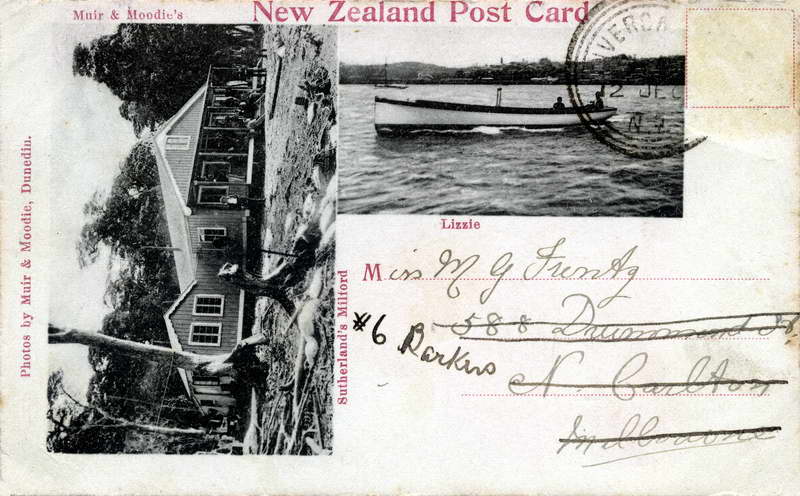 Muir & Moodie's
New Zealand Post Card
VERCA
12 DE
N.Z
Photos by Muir & Moodie, Dunedin.
Sutherland's Milford
Lizzie
Miss M G Frentz
588 Drummond St
#6 Barkers
N. Carlton
Melbourne